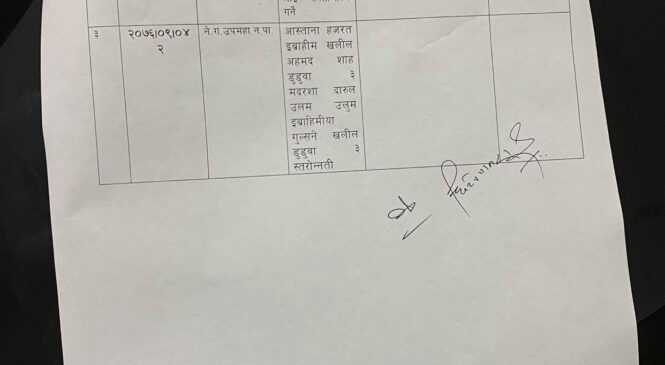 गर्ने
३
२०७६।०९।०४
२
ने.ग.उपमहा.न.पा.
आस्ताना हजरत
इब्राहीम खलील
अहमद शाह
डुडुवा ३
मदरशा दारुल
उलम उलुम
इब्राहिमीया
गुल्सने खलील
डुडुवा ३
स्तरोन्नती